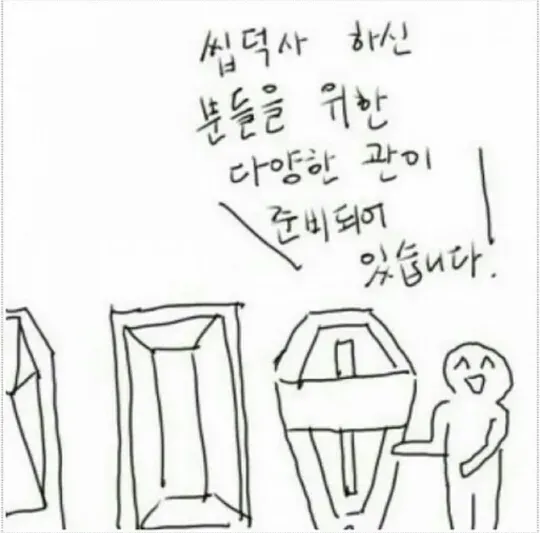 씹덕사 하신
분들을 위한
다양한 관이
준비되어
있습니다.